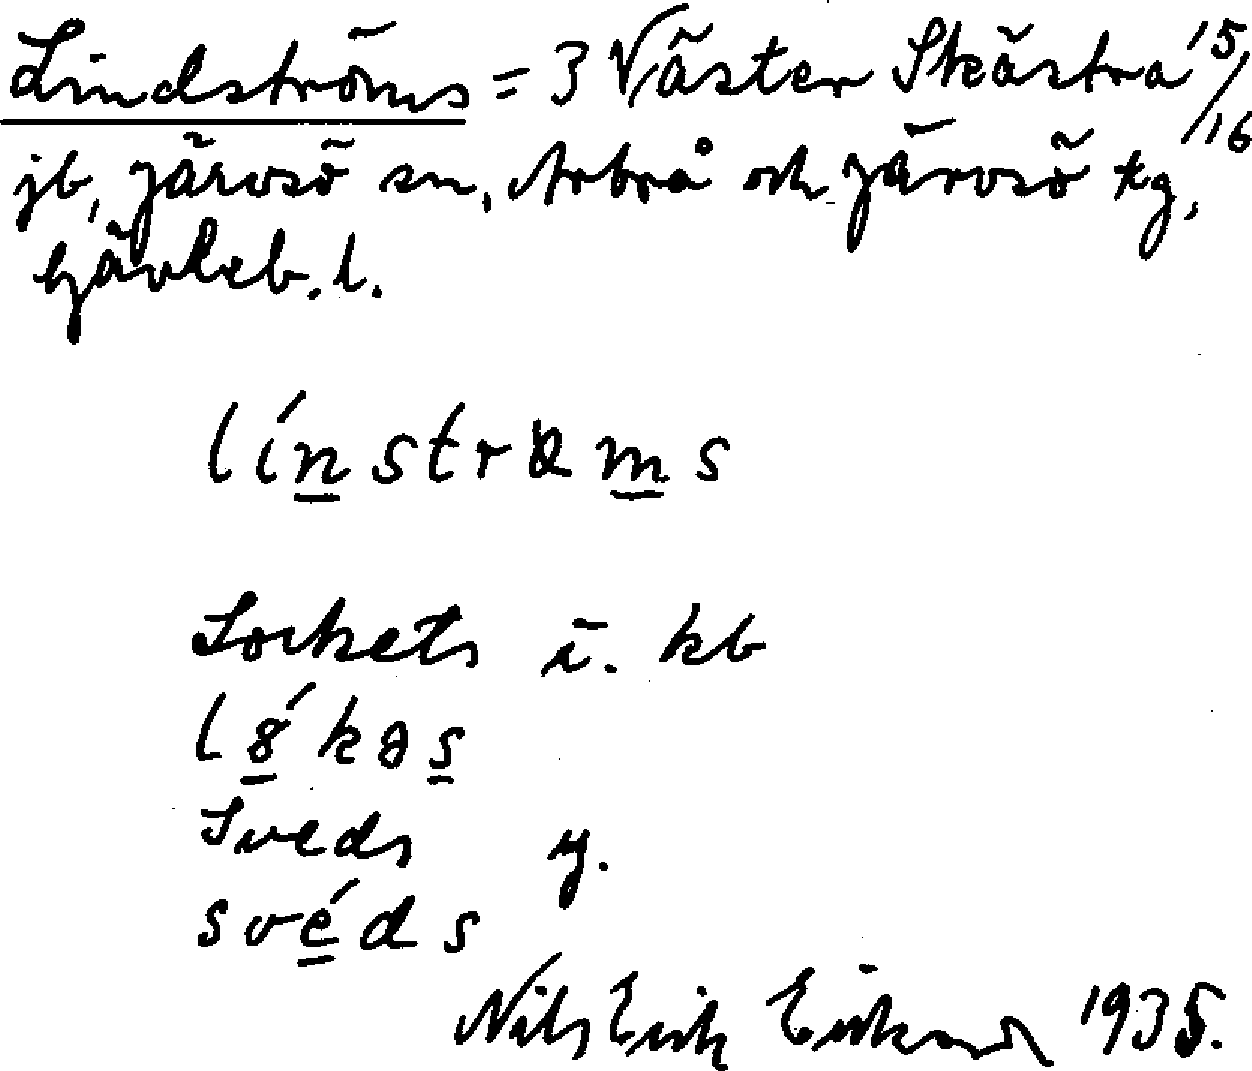 Lindströms = 3 Väster Skästra 15/16
jb, Järvsö sn, Arbrå och Järvsö tg,
Gävleb. l.
línstrøms
Sockets ä. kb
lǿkəs
Sveds y.
svéds
Nils Erik Eriksson 1935.